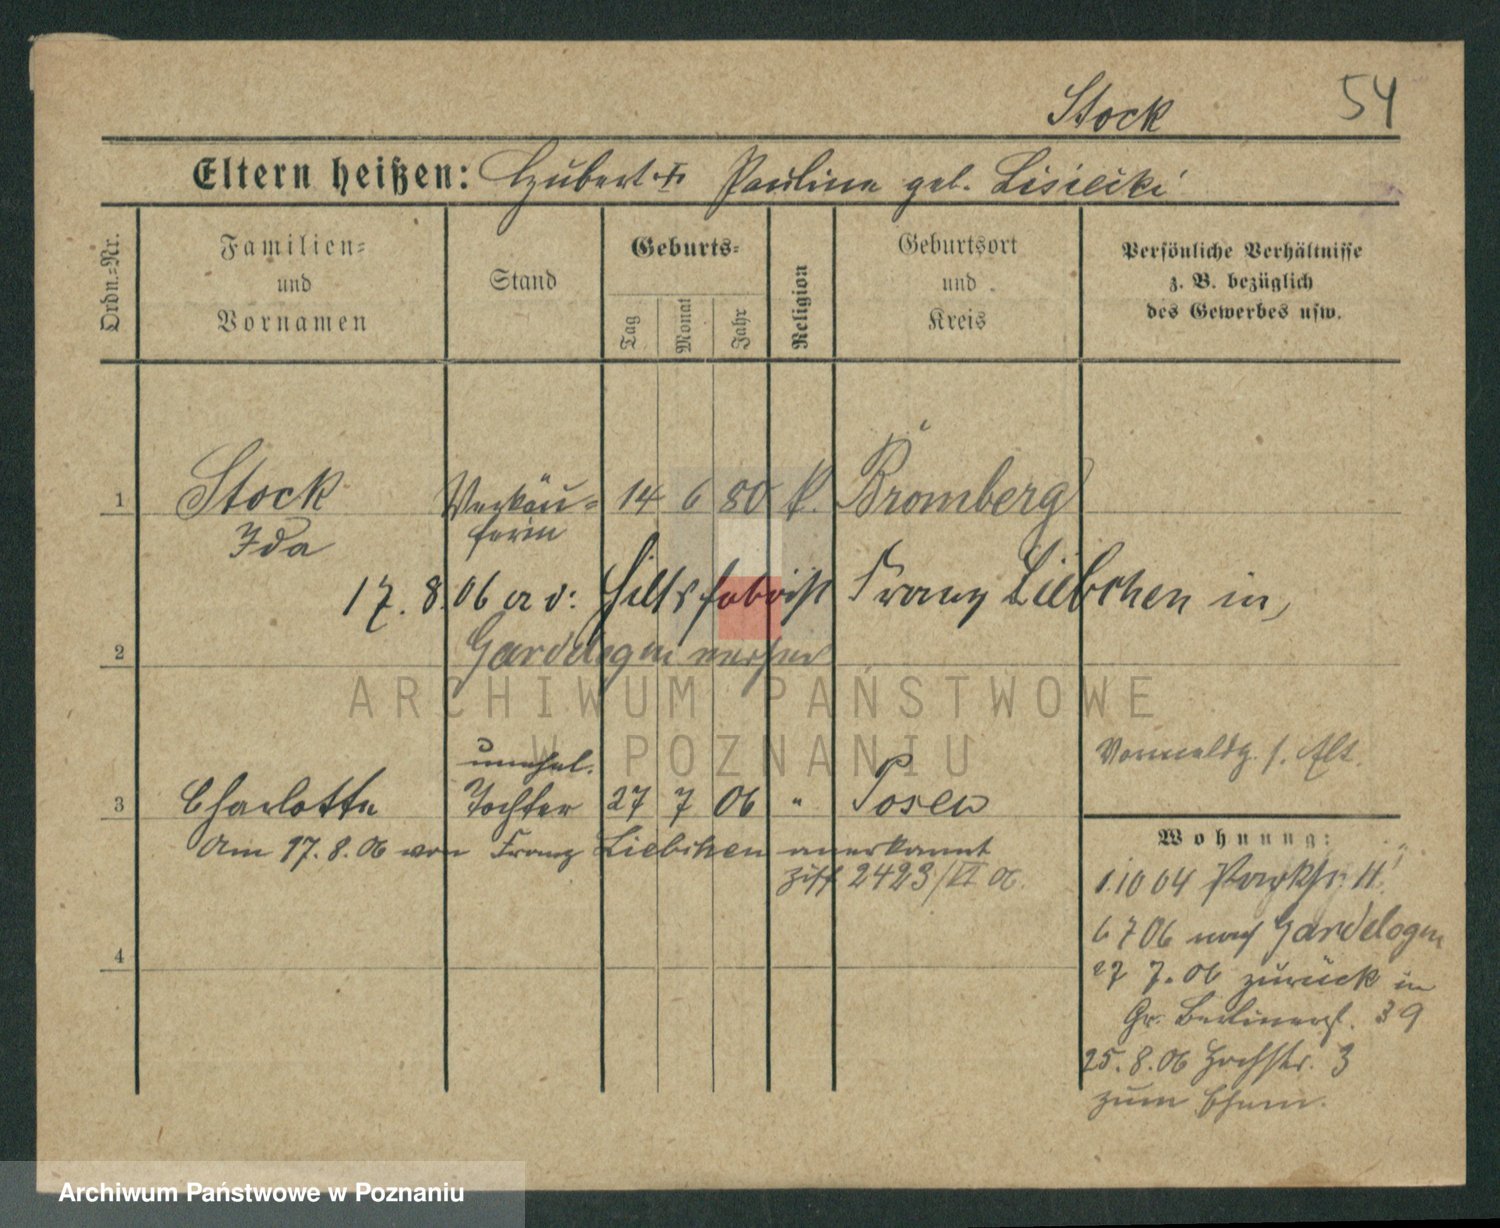 Stock 54
Eltern heißen: Hubert u. Paulina geb. Lisiecki
Ordn.=Nr.
Familien=
und
Vornamen
Stand
Geburts=
Tag
Monat
Jahr
Religion
Geburtsort
und
Kreis
Persönliche Verhältnisse
z. B. bezüglich
des Gewerbes usw.
1 Stock Verkäu= 14 6 80 k. Bromberg
Ida ferin
17. 8. 06 a. d. Franz Liebchen in
2 Gardelegen
ARCHIWUM PAŃSTWOWE
W POZNANIU
unehel.
3 Charlotte Tochter 27 7 06 " Posen
Am 17. 8. 06 von Franz Liebchen anerkannt
2423/VI 06.
4
Wohnung:
1.10 04 Parkstr. 11
6 7 06 nach Gardelegen
27 7. 06 zurück in
Gr. Berlinerst. 39
25. 8. 06 Hochstr. 3
zum Ehem.
Archiwum Państwowe w Poznaniu